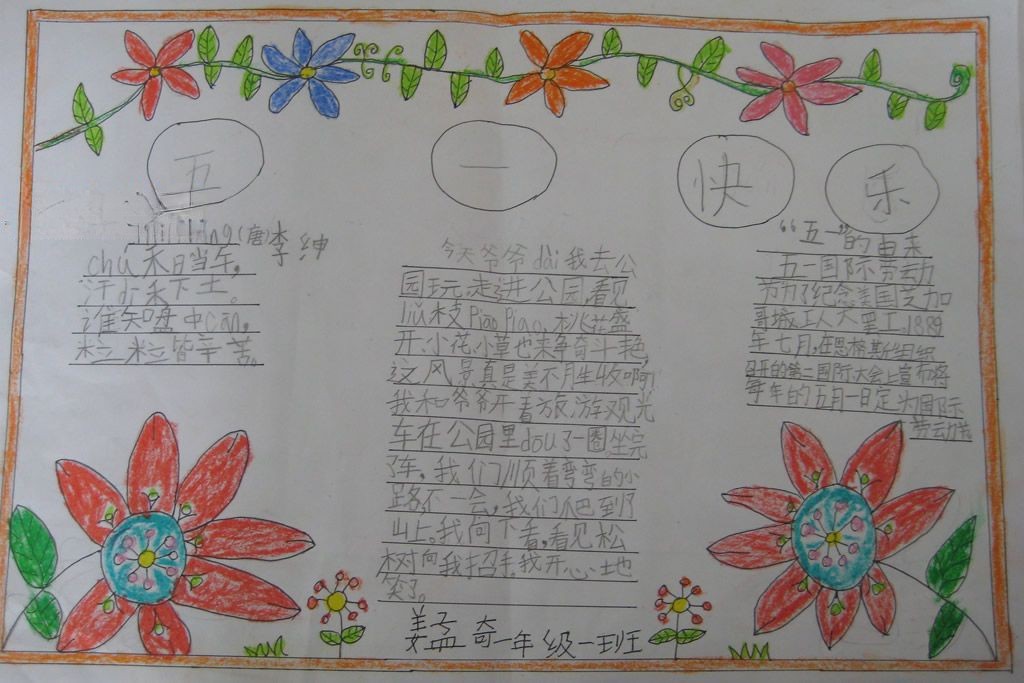 五 一 快 乐
(唐)李绅
chú禾日当午,
汗di禾下土。
谁知盘中cān,
粒粒皆辛苦。
今天爷爷dài我去公
园玩,走进公园,看见
liǔ枝Piāo Piao,桃花盛
开,小花、小草也来争奇斗艳,
这风景真是美不月生收啊!
我和爷爷开着旅游观光
车在公园里dōu了一圈,坐完
了车,我们顺着弯弯白的小
路,不一会,我们爬到了
山上。我向下看,看见松
树向我招手,我开心地
笑了。
姜孟奇一年级一班
“五一”的由来
五一国际劳动
节为了纪念美国芝加
哥城工人大罢工,1889
年七月,在恩格斯组织
召开的第二国际大会上宣布将
每年的五月一日定为国际
劳动节。